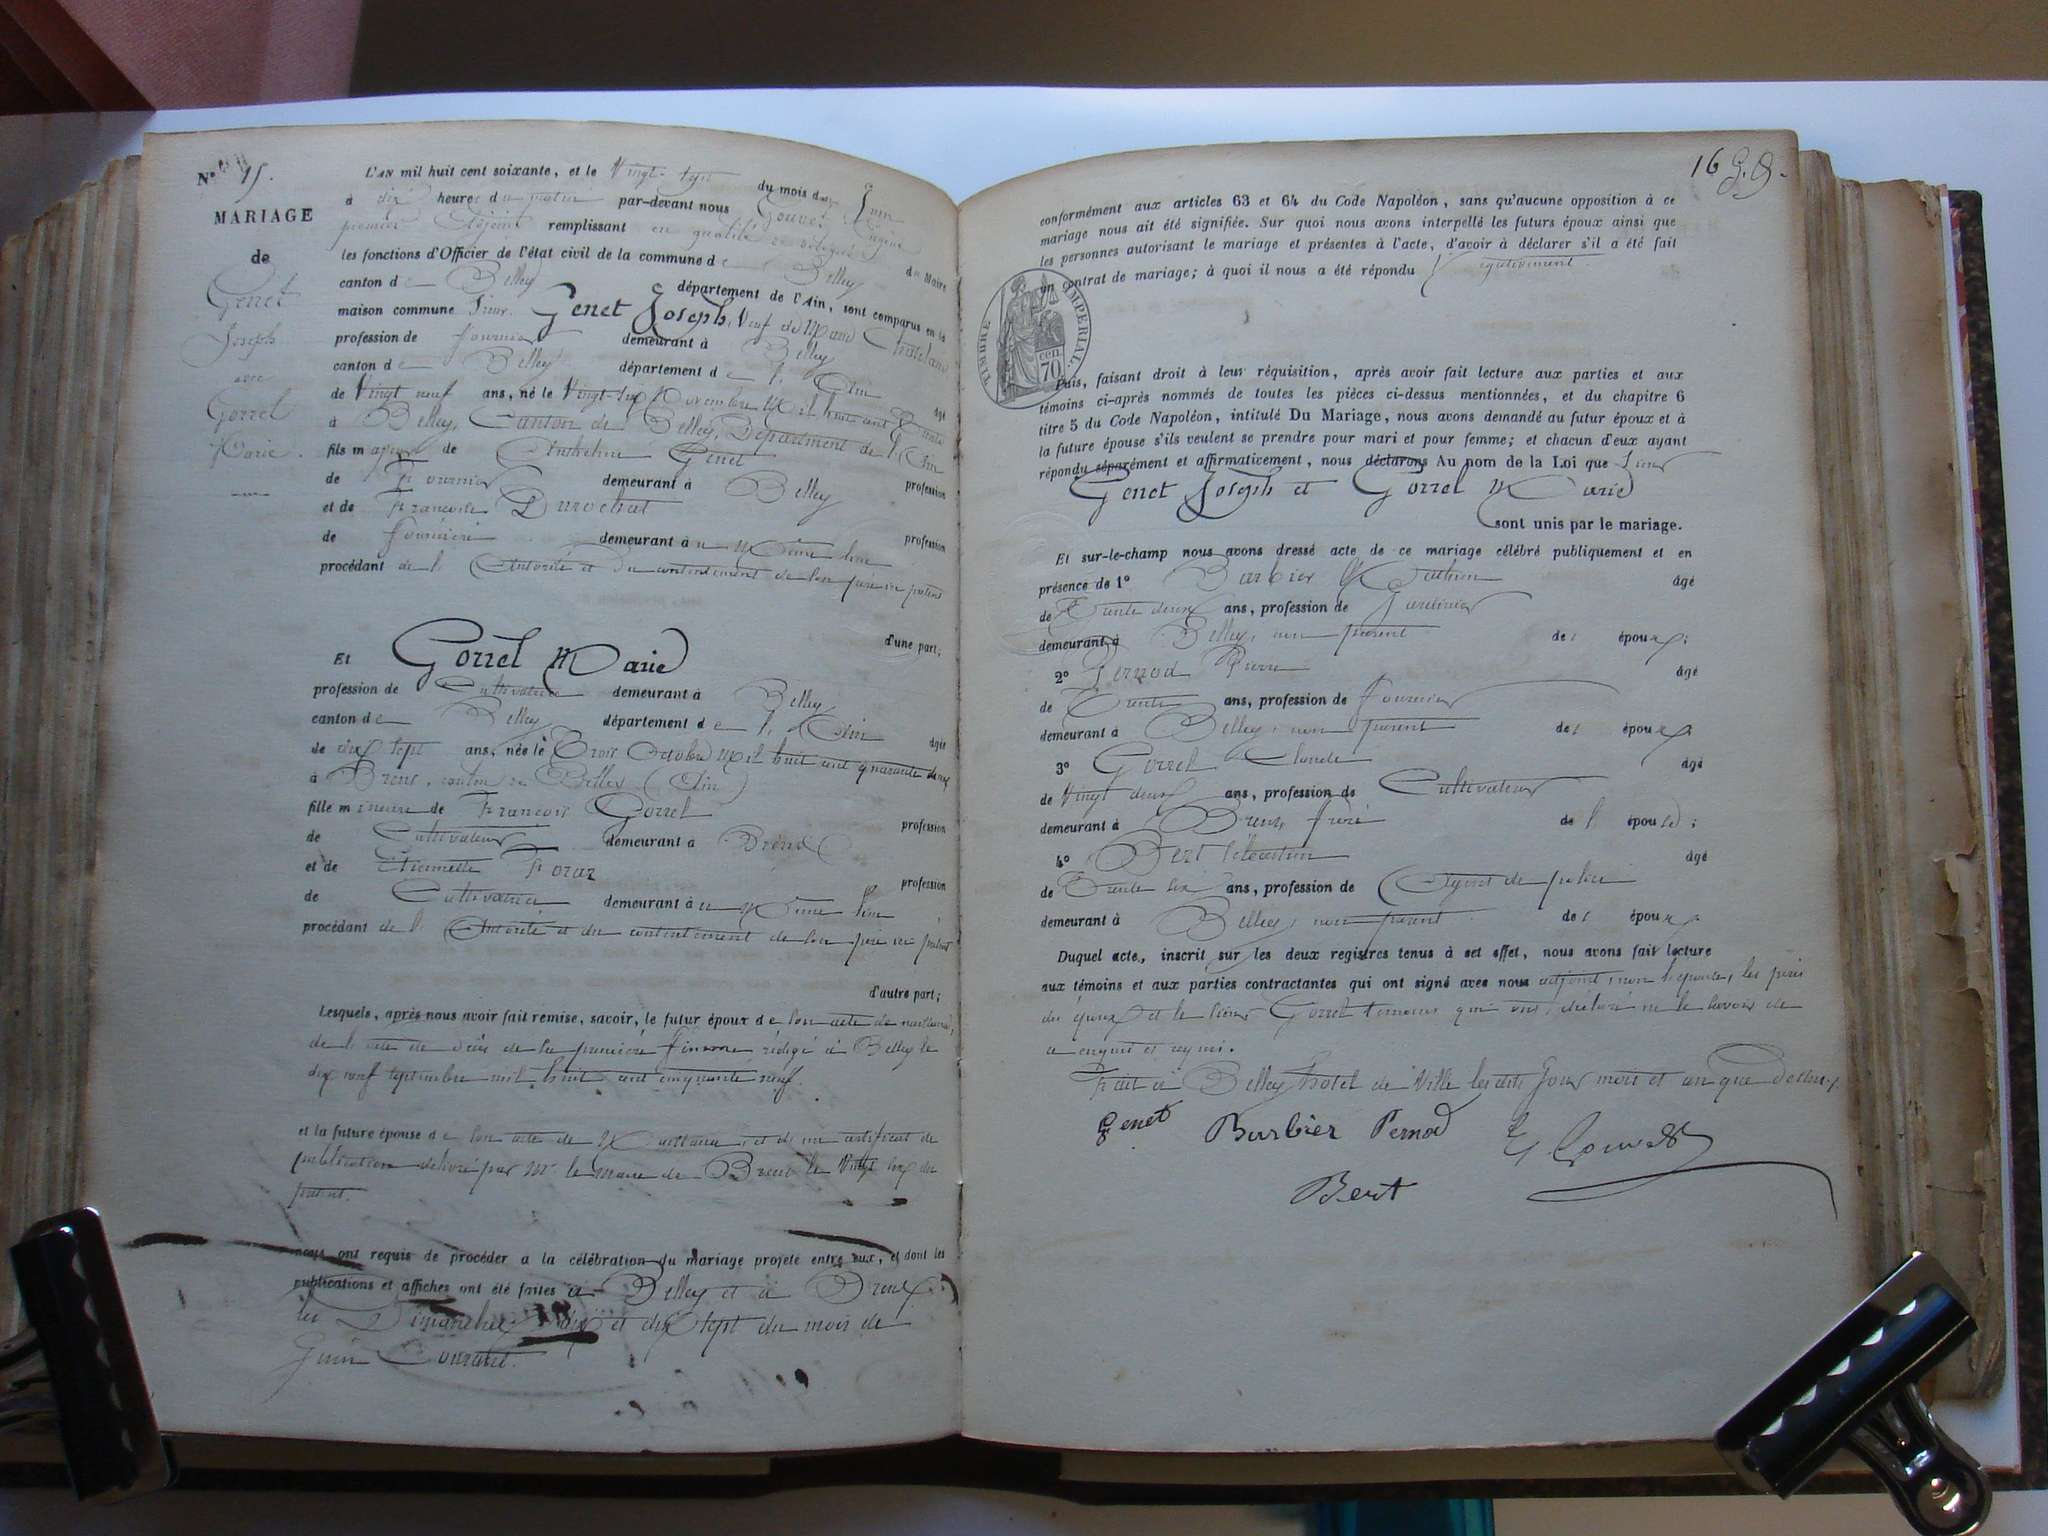 N° 15.
MARIAGE
de
Genet
Joseph
avec
Gorrel
Marie.
L'AN mil huit cent soixante, et le Vingt-sept du mois de Juin
à dix heures du matin par-devant nous Gouvet Eugène
premier Adjoint remplissant en qualité de délégué du Maire
les fonctions d'Officier de l'état civil de la commune de Belley
canton de Belley département de l'Ain, sont comparus en la
maison commune Sieur Genet Joseph, Veuf de Marie Chatelain
profession de fournier demeurant à Belley
canton de Belley département de l'Ain âgé
de Vingt neuf ans, né le Vingt-six Novembre Mil huit cent Trente
à Belley, Canton de Belley, Département de l'Ain
fils majeur de Anthelme Genet profession
de Fournier demeurant à Belley
et de Françoise Durochat profession
de fournière demeurant à u Même lieu
procédant de l'Autorité et du consentement de son père ici présent
d'une part;
Et Gorrel Marie
profession de Cultivatrice demeurant à Belley
canton de Belley département de l'Ain âgée
de dix sept ans, née le Trois Octobre Mil huit cent quarante deux
à Brens, canton de Belley (Ain)
fille mineure de François Gorrel profession
de Cultivateur demeurant à Brens
et de Etiennette profession
de Cultivatrice demeurant à u Même lieu
procédant de l'Autorité et du consentement de son père ici présent
d'autre part;
Lesquels, après nous avoir fait remise, savoir, le futur époux de son acte de naissance,
de l'acte de décès de sa première femme rédigé à Belley le
dix neuf septembre mil huit cent cinquante neuf.
et la future épouse de son acte de Naissance, et d'un certificat de
publication délivré par Mr le Maire de Brens le Vingt six du
présent.
nous ont requis de procéder a la célébration du mariage projeté entre eux, et dont les
publications et affiches ont été faites à Belley et à Brens
les Dimanches dix et dix Sept du mois de
Juin Courant.
16
conformément aux articles 63 et 64 du Code Napoléon, sans qu'aucune opposition à ce
mariage nous ait été signifiée. Sur quoi nous avons interpellé les futurs époux ainsi que
les personnes autorisant le mariage et présentes à l'acte, d'avoir à déclarer s'il a été fait
un contrat de mariage; à quoi il nous a été répondu Négativement.
TIMBRE IMPERIAL
70 cen.
Puis, faisant droit à leur réquisition, après avoir fait lecture aux parties et aux
témoins ci-après nommés de toutes les pièces ci-dessus mentionnées, et du chapitre 6
titre 5 du Code Napoléon, intitulé Du Mariage, nous avons demandé au futur époux et à
la future épouse s'ils veulent se prendre pour mari et pour femme; et chacun d'eux ayant
répondu séparément et affirmaticement, nous déclarons Au nom de la Loi que Sieur
Genet Joseph et Gorrel Marie
sont unis par le mariage.
Et sur-le-champ nous avons dressé acte de ce mariage célébré publiquement et en
présence de 1° Barbier Mathieu âgé
de Trente deux ans, profession de Jardinier
demeurant à Belley, non parent des époux;
2° Pernod Pierre âgé
de Trente ans, profession de fournier
demeurant à Belley, non parent des époux
3° Gorrel Claude âgé
de Vingt deux ans, profession de Cultivateur
demeurant à Brens, frère de l'épouse;
4° Bert Célestin âgé
de Trente six ans, profession de Agent de police
demeurant à Belley, non parent des époux
Duquel acte, inscrit sur les deux registres tenus à set effet, nous avons fait lecture
aux témoins et aux parties contractantes qui ont signé avec nous adjoint, non l'épouse, les pères
des époux et le Sieur Gorrel témoin qui ont déclaré ne le savoir de
ce enquis et requis.
Fait à Belley hôtel de Ville les dits Jour mois et an que dessus.
Genet Barbier Pernod E. Gouvet
Bert